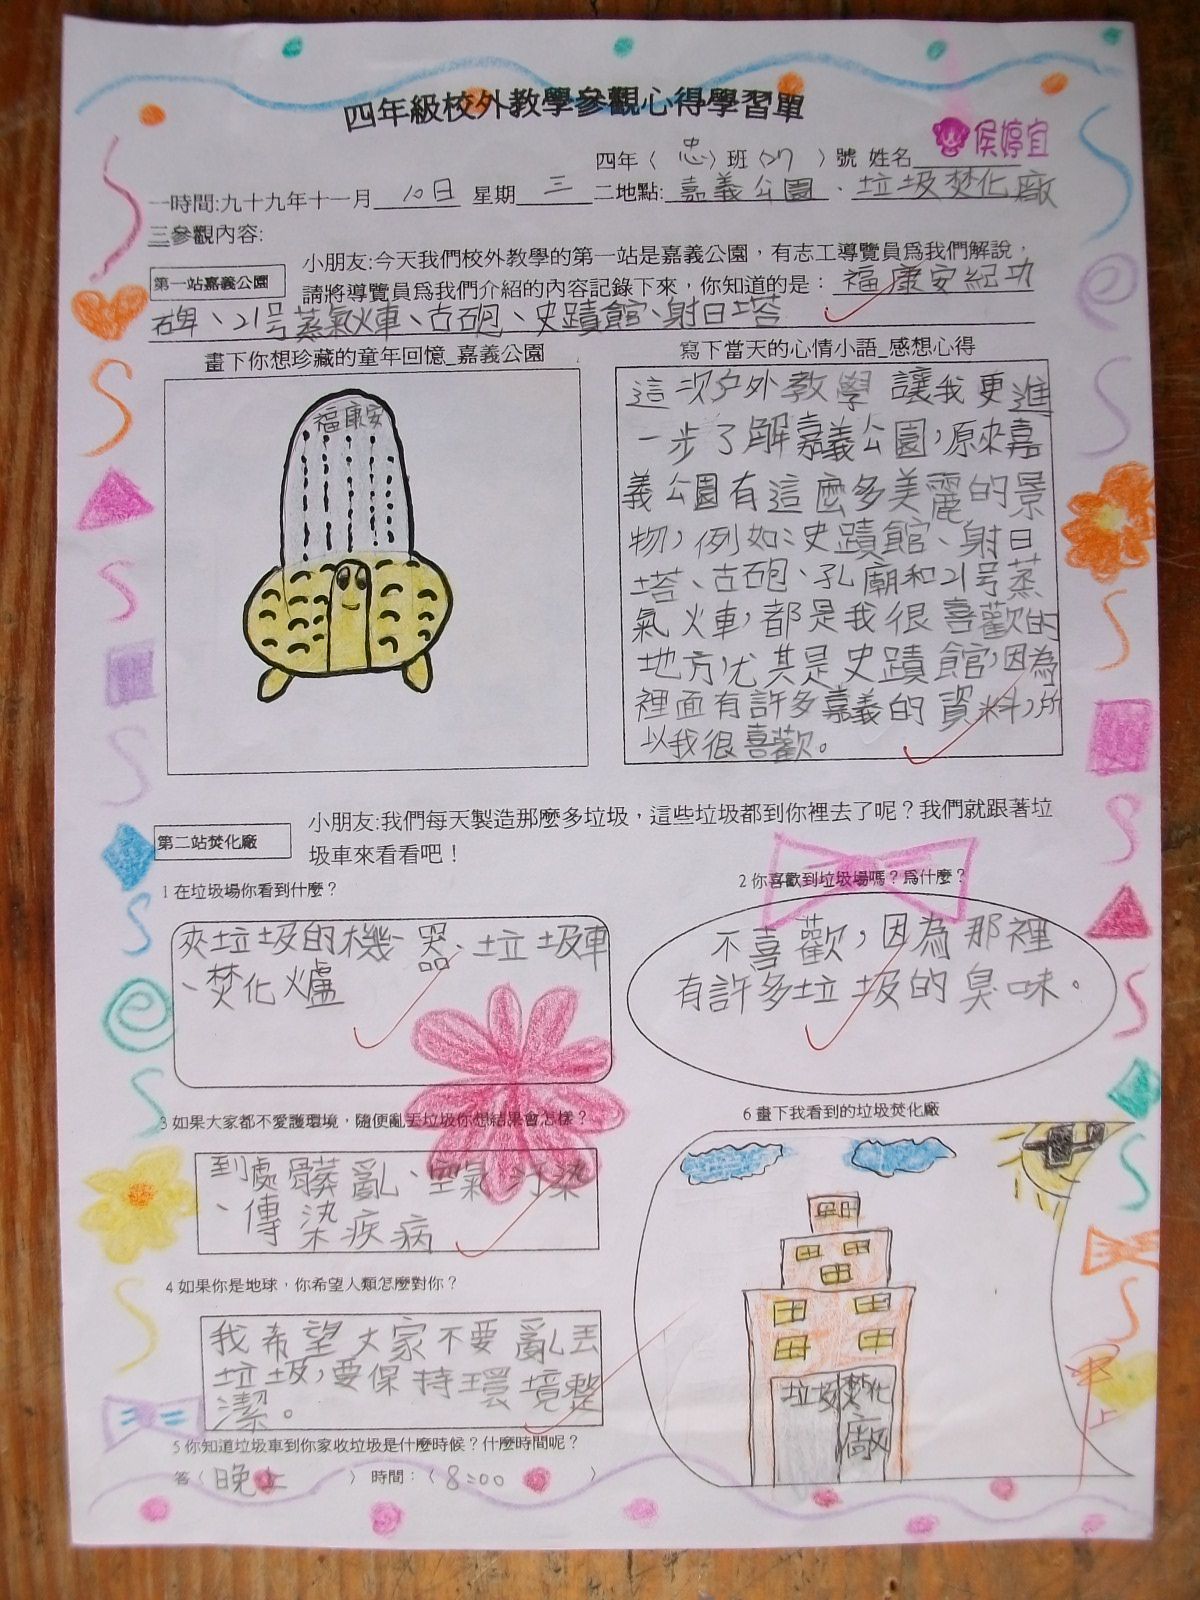 四年級校外教學參觀心得學習單
四年（忠）班（27）號 姓名 侯婷宜
一時間:九十九年十一月 10日 星期 三 二地點: 嘉義公園、垃圾焚化廠
三參觀內容:
第一站嘉義公園
小朋友:今天我們校外教學的第一站是嘉義公園，有志工導覽員為我們解說，
請將導覽員為我們介紹的內容記錄下來，你知道的是：福康安紀功
碑、21号蒸氣火車、古砲、史蹟館、射日塔
畫下你想珍藏的童年回憶_嘉義公園
福康安
寫下當天的心情小語_感想心得
這次戶外教學讓我更進
一步了解嘉義公園,原來嘉
義公園有這麼多美麗的景
物,例如:史蹟館、射日
塔、古砲、孔廟和21号蒸
氣火車,都是我很喜歡的
地方尤其是史蹟館,因為
裡面有許多嘉義的資料,所
以我很喜歡。
第二站焚化廠
小朋友:我們每天製造那麼多垃圾，這些垃圾都到你裡去了呢？我們就跟著垃
圾車來看看吧！
1 在垃圾場你看到什麼？
夾垃圾的機器、垃圾車
、焚化爐
2 你喜歡到垃圾場嗎？為什麼？
不喜歡,因為那裡
有許多垃圾的臭味。
3 如果大家都不愛護環境，隨便亂丟垃圾你想結果會怎樣？
到處髒亂、空氣汙染
、傳染疾病
4 如果你是地球，你希望人類怎麼對你？
我希望大家不要亂丟
垃圾,要保持環境整
潔。
5 你知道垃圾車到你家收垃圾是什麼時候？什麼時間呢？
答（晚上）時間：（8:00）
6 畫下我看到的垃圾焚化廠
垃圾焚化
廠